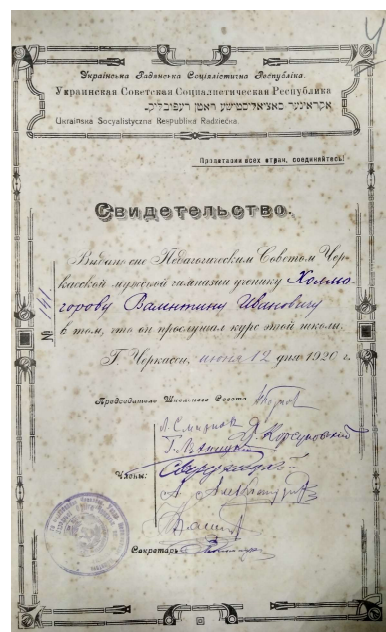 Українська Радянська Соціялістична Республіка.
Украинская Советская Социалистическая Республика
אוקראינער סאציאליסטישע ראטן רעפובליק.
Ukrainska Socyalistyczna Respublika Radziecka.
Пролетарии всех стран, соединяйтесь!
Свидетельство.
Выдано сие Педагогическим Советом Чер-
касской мужской гимназии ученику Холмо-
горову Валентину Ивановичу
в том, что он прослушал курс этой школы.
№ 141.
Г. Черкассы, июня 12 дня 1920 г.
Председатель Школьного Совета
Л. Смирнов
Д. Корсуновский
Члены:
А. Александров
Секретарь